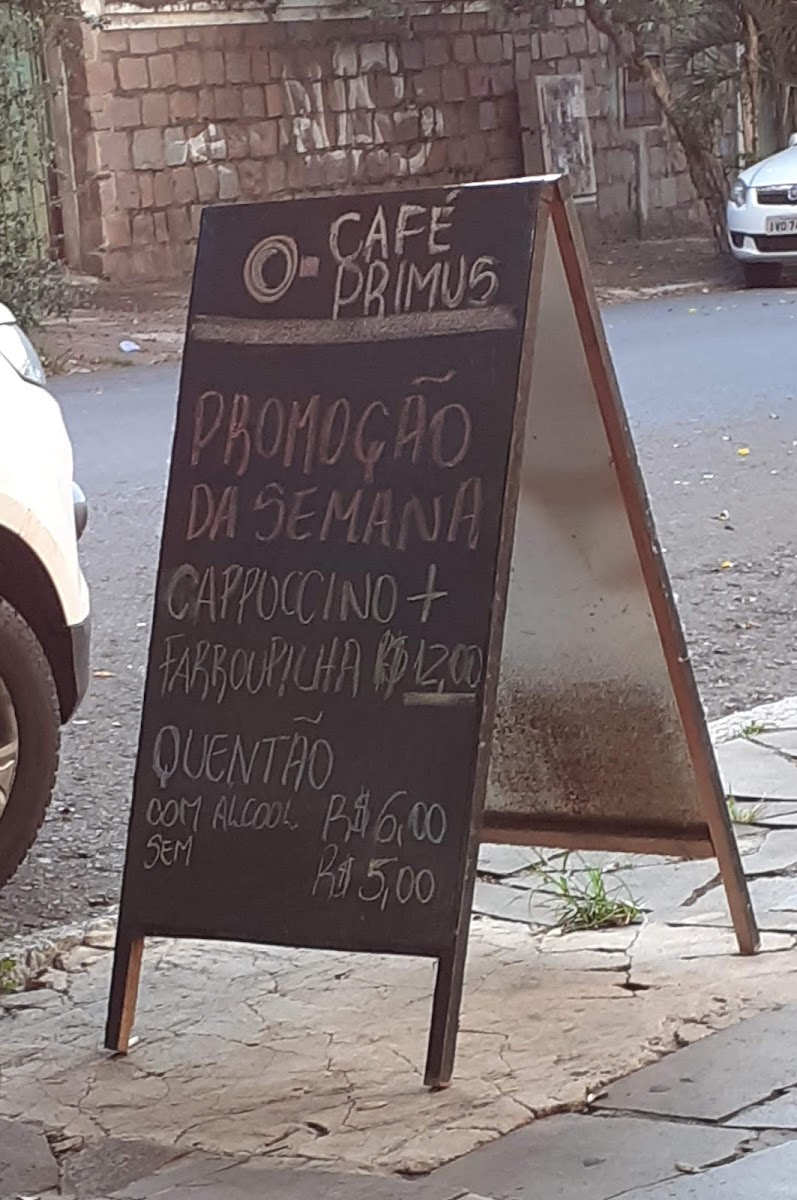 CAFÉ
PRIMUS
PROMOÇÃO
DA SEMANA
CAPPUCCINO +
FARROUPILHA R$ 12,00
QUENTÃO
COM ALCOOL R$ 6,00
SEM R$ 5,00